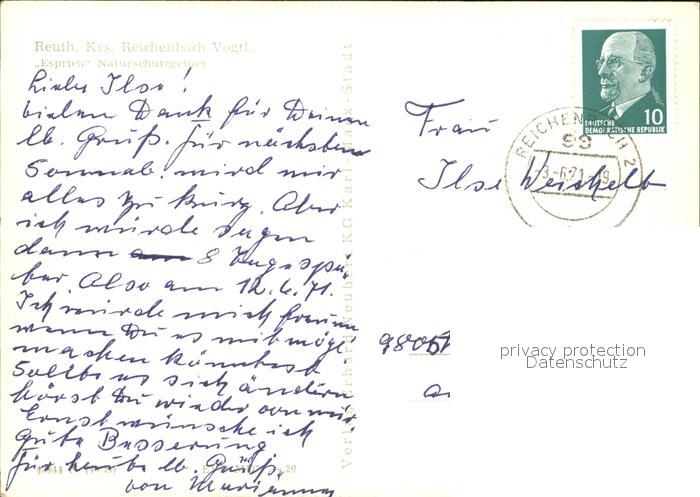 Reuth, Krs. Reichenbach Vogtl.
„Esprich" Naturschutzgebiet
Liebe Ilse!
vielen Dank für Deinen
lb. Gruß. Für nächsten
Sonnab. wird mir
alles zu kurz. Aber
ich würde sagen
dann 8 Tage spä-
ter. Also am 12.6.71.
Ich würde mich freuen
wenn Du es mit mögl.
machen könntest
Sollte es sich ändern
hörst Du wieder von mir.
Ernst wünsche ich
gute Besserung
Für heute lb. Grüße
von Marianne
Frau
Ilse
DEUTSCHE
DEMOKRATISCHE REPUBLIK
10
REICHENBACH 2
98
-3.-6.71-19
9805
privacy protection
Datenschutz